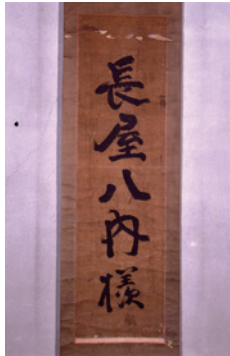 長屋八内様